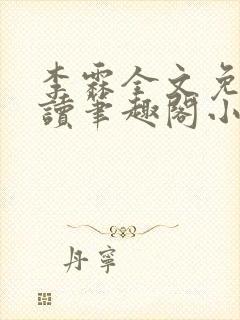 李霖全文免
讀筆趣閣小
丹寧